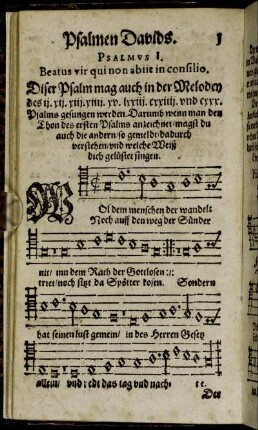 Psalmen Davids. 1
PSALMVS I.
Beatus vir qui non abiit in consilio.
Diser Psalm mag auch in der Melodey
des ij. xij. xiij. xiiij. xv. lxxiij. cxxiiij. vnd cxxx.
Psalms gesungen werden. Darumb wenn man den
Thon des ersten Psalms anzeichnet/magst du
auch die andern/so gemeldt/dadurch
verstehen/vnd welche Weiß
dich gelüstet singen.
WOl dem menschen der wandelt
Noch auff den weg der Sünder
nit/ inn dem Rath der Gottlosen :/:
tritt/noch sitzt da Spötter kosen. Sondern
hat seinen lust gemein/ in des Herren Gesetz
allein/ vnd redt das tag vnd nach- te.
Der